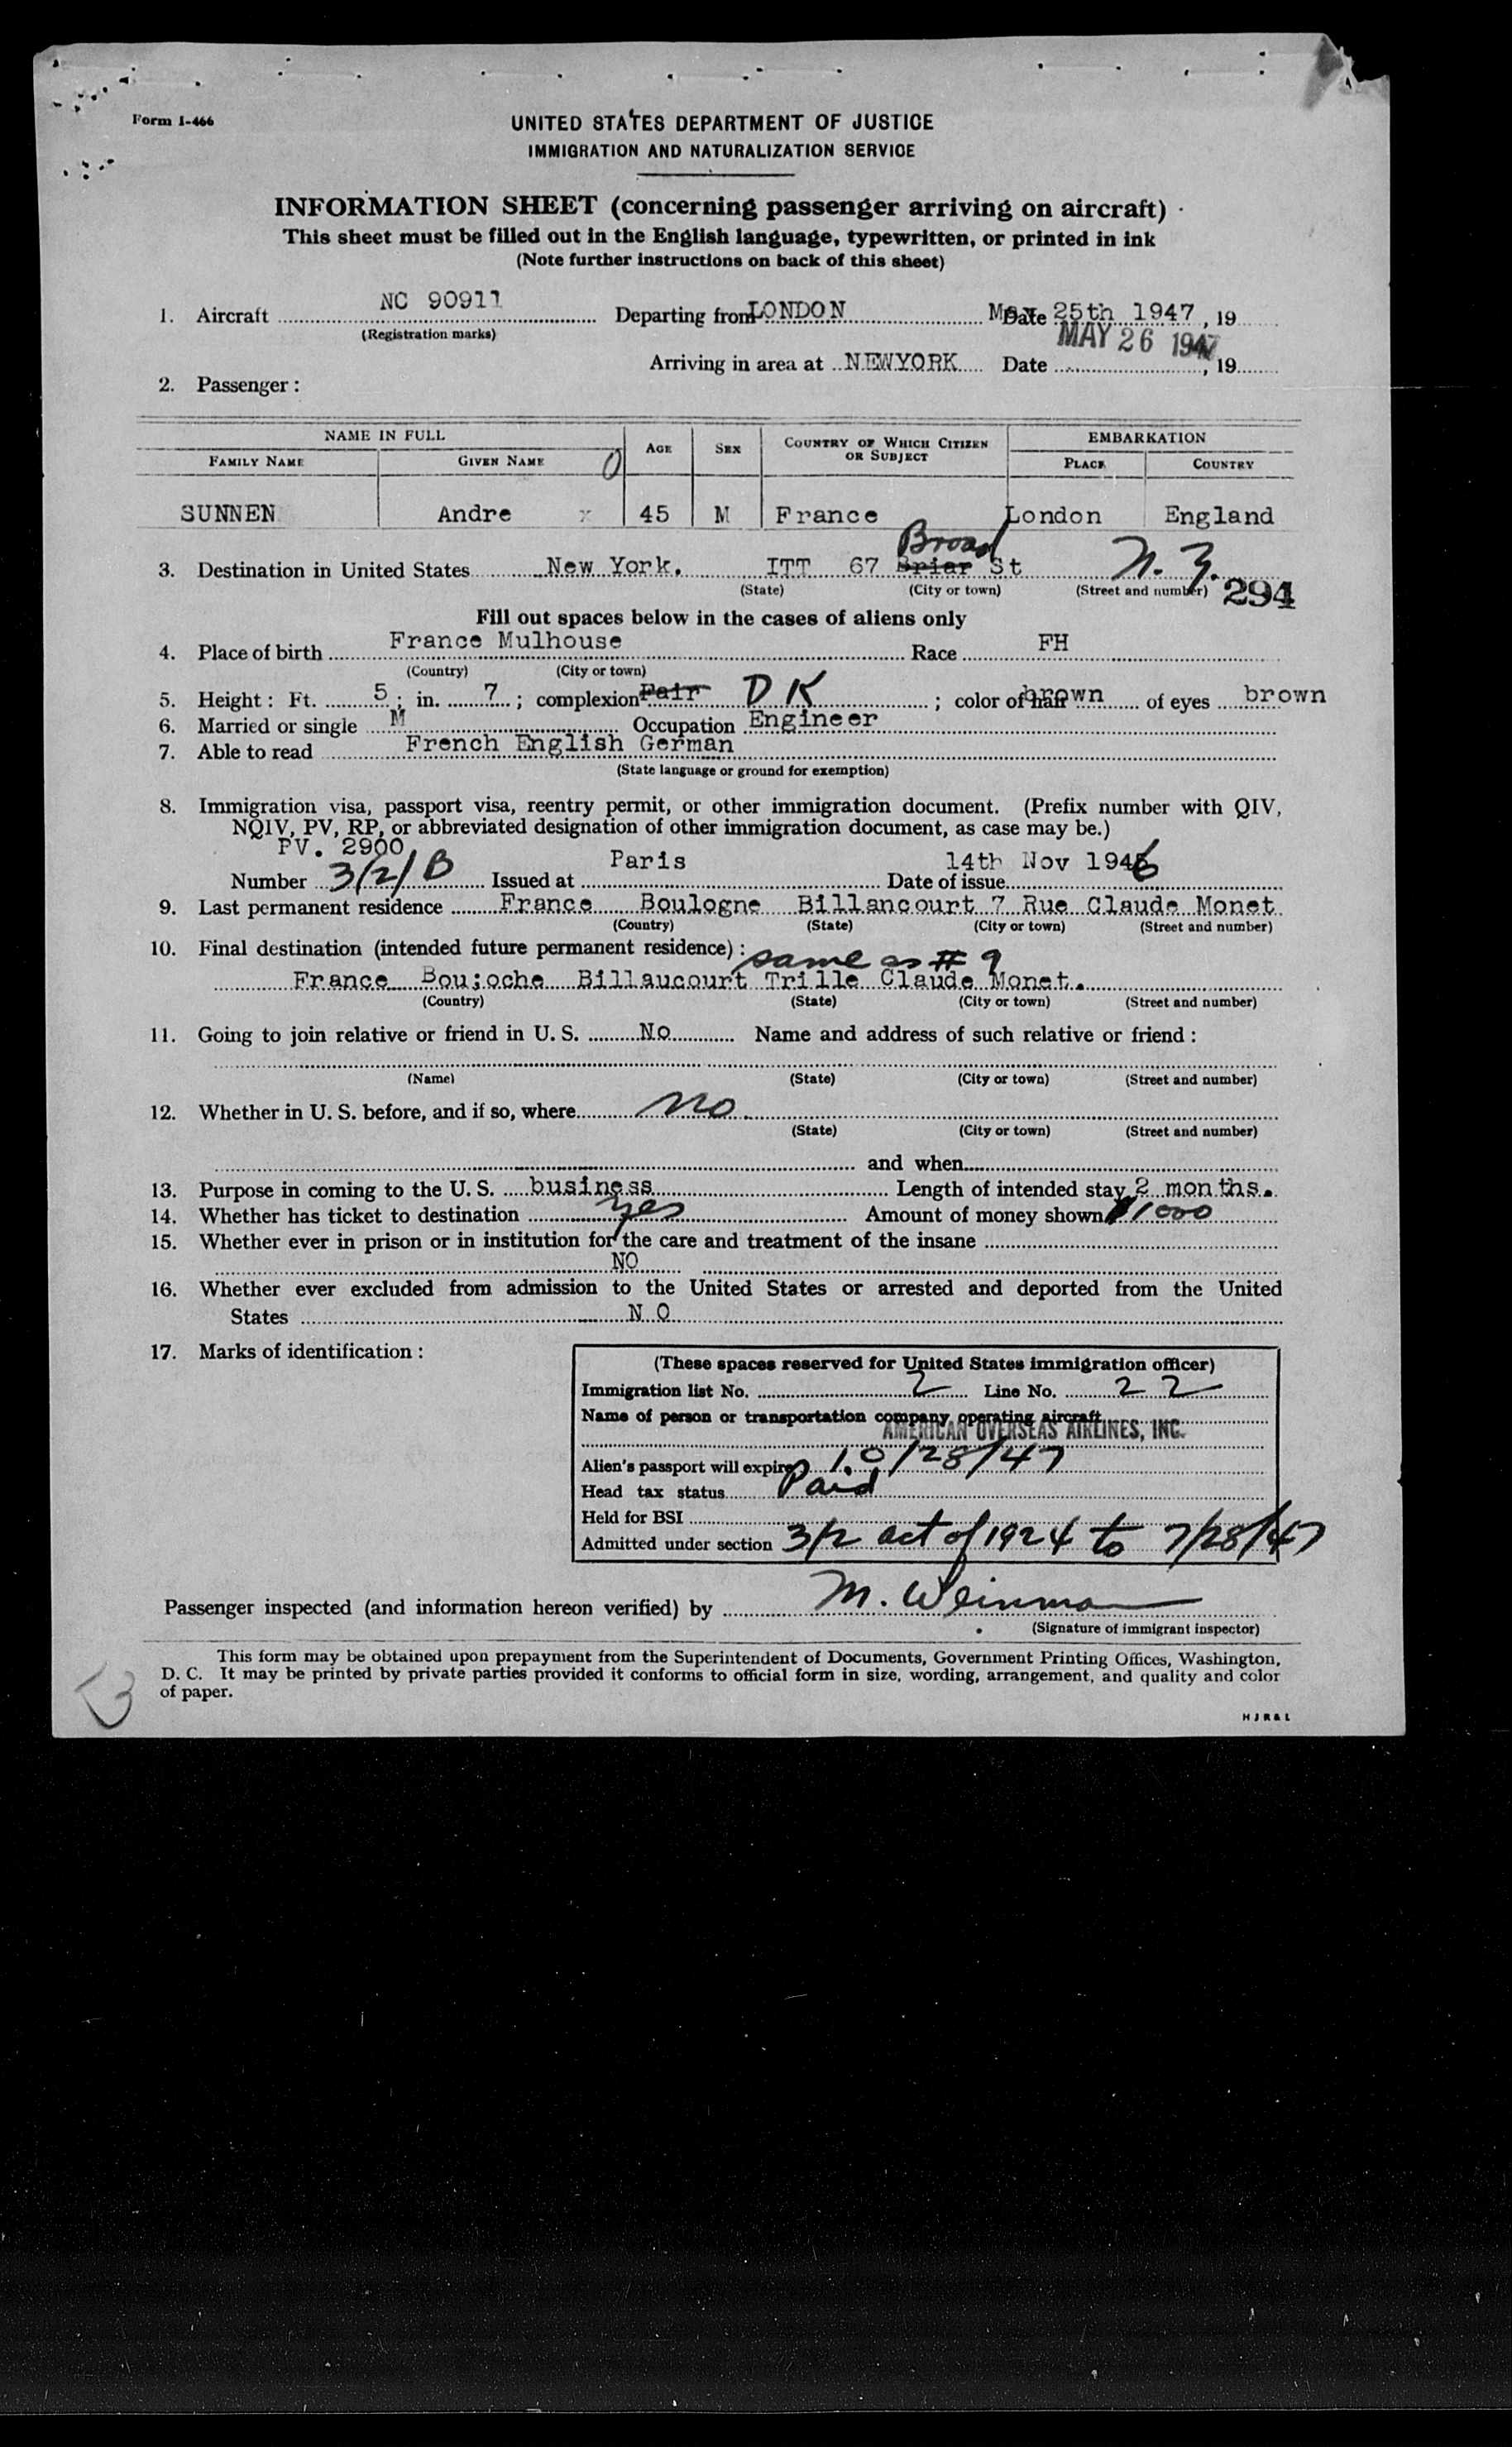 Form I-466
UNITED STATES DEPARTMENT OF JUSTICE
IMMIGRATION AND NATURALIZATION SERVICE
INFORMATION SHEET (concerning passenger arriving on aircraft)
This sheet must be filled out in the English language, typewritten, or printed in ink
(Note further instructions on back of this sheet)
1. Aircraft NC 90911 Departing from LONDON Date May 25th 1947, 19
(Registration marks)
MAY 26 1947
Arriving in area at NEWYORK Date , 19
2. Passenger:
NAME IN FULL AGE SEX COUNTRY OF WHICH CITIZEN OR SUBJECT EMBARKATION
FAMILY NAME GIVEN NAME PLACE COUNTRY
SUNNEN Andre x 45 M France London England
Broad
3. Destination in United States New York. ITT 67 Briar St N. Y.
(State) (City or town) (Street and number) 294
Fill out spaces below in the cases of aliens only
4. Place of birth France Mulhouse Race FH
(Country) (City or town)
5. Height: Ft. 5; in. 7; complexion Fair DK; color of hair brown of eyes brown
6. Married or single M Occupation Engineer
7. Able to read French English German
(State language or ground for exemption)
8. Immigration visa, passport visa, reentry permit, or other immigration document. (Prefix number with QIV,
NQIV, PV, RP, or abbreviated designation of other immigration document, as case may be.)
PV. 2900
Number 3(2)B Issued at Paris Date of issue 14th Nov 1946
9. Last permanent residence France Boulogne Billancourt 7 Rue Claude Monet
(Country) (State) (City or town) (Street and number)
10. Final destination (intended future permanent residence): same as # 9
France Bou;oche Billaucourt Trille Claude Monet.
(Country) (State) (City or town) (Street and number)
11. Going to join relative or friend in U. S. No Name and address of such relative or friend:
(Name) (State) (City or town) (Street and number)
12. Whether in U. S. before, and if so, where no
(State) (City or town) (Street and number)
and when
13. Purpose in coming to the U. S. business Length of intended stay 2 months.
14. Whether has ticket to destination yes Amount of money shown $1000
15. Whether ever in prison or in institution for the care and treatment of the insane
NO
16. Whether ever excluded from admission to the United States or arrested and deported from the United
States N O
17. Marks of identification:
(These spaces reserved for United States immigration officer)
Immigration list No. 2 Line No. 22
Name of person or transportation company operating aircraft
AMERICAN OVERSEAS AIRLINES, INC.
Alien's passport will expire 10/28/47
Head tax status Paid
Held for BSI
Admitted under section 3/2 act of 1924 to 7/28/47
Passenger inspected (and information hereon verified) by M. Weinman
(Signature of immigrant inspector)
This form may be obtained upon prepayment from the Superintendent of Documents, Government Printing Offices, Washington,
D. C. It may be printed by private parties provided it conforms to official form in size, wording, arrangement, and quality and color
of paper.
H J R & L